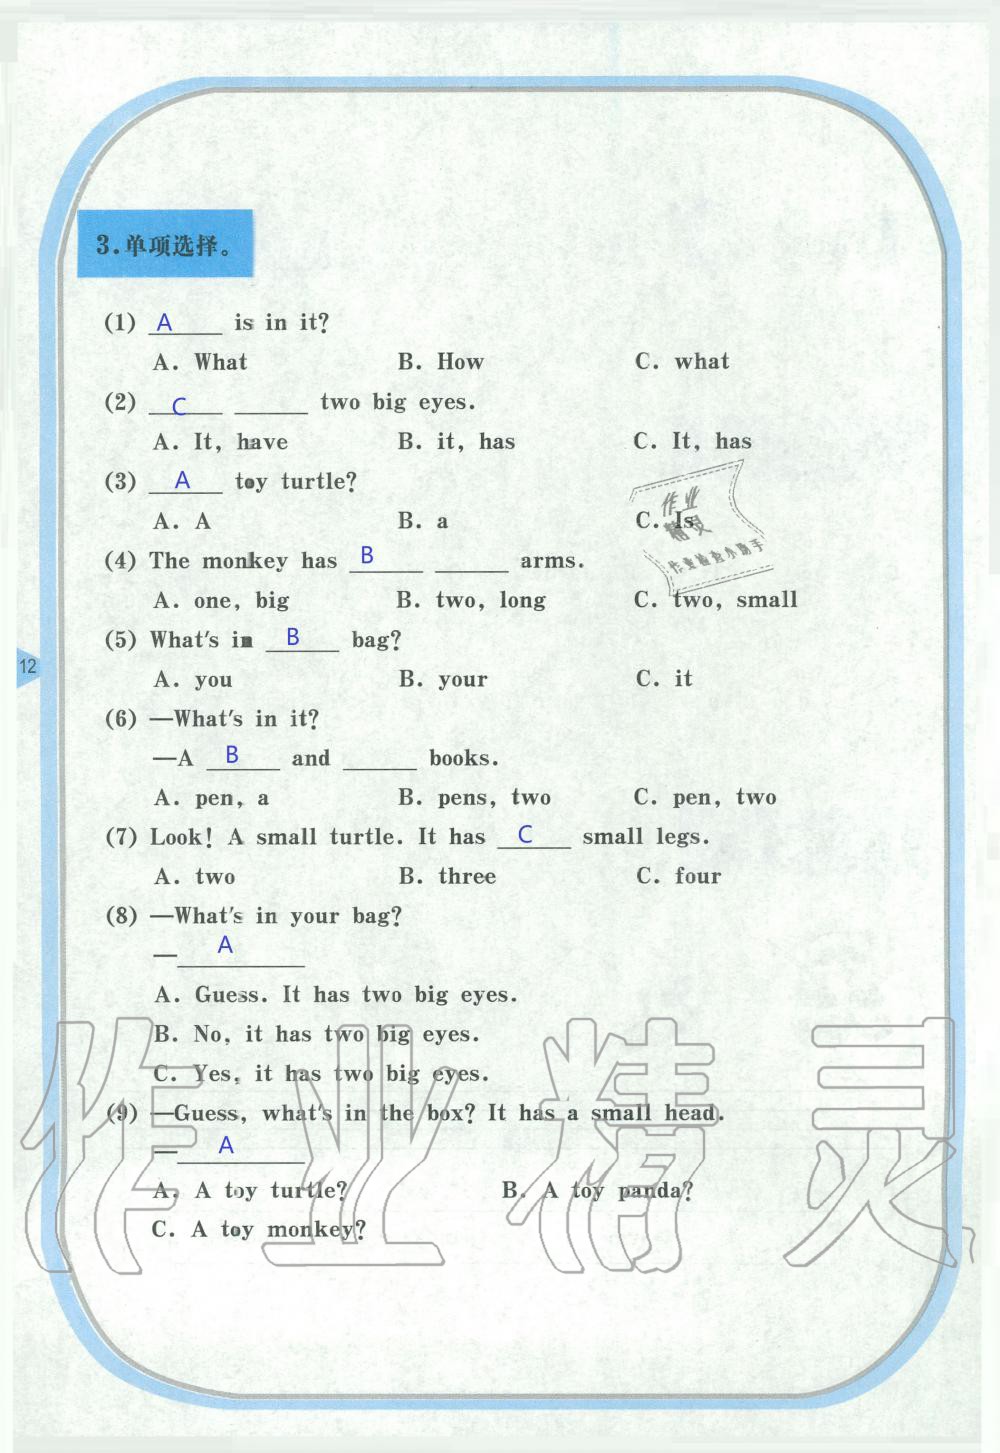 3.单项选择。
(1) A is in it?
A. What B. How C. what
(2) C ______ two big eyes.
A. It, have B. it, has C. It, has
(3) A toy turtle?
A. A B. a C. Is
作业
精灵
作业检查小助手
(4) The monkey has B ______ arms.
A. one, big B. two, long C. two, small
(5) What's in B bag?
A. you B. your C. it
12
(6) —What's in it?
—A B and ______ books.
A. pen, a B. pens, two C. pen, two
(7) Look! A small turtle. It has C small legs.
A. two B. three C. four
(8) —What's in your bag?
— A
A. Guess. It has two big eyes.
B. No, it has two big eyes.
C. Yes, it has two big eyes.
(9) —Guess, what's in the box? It has a small head.
— A
A. A toy turtle? B. A toy panda?
C. A toy monkey?
作业精灵